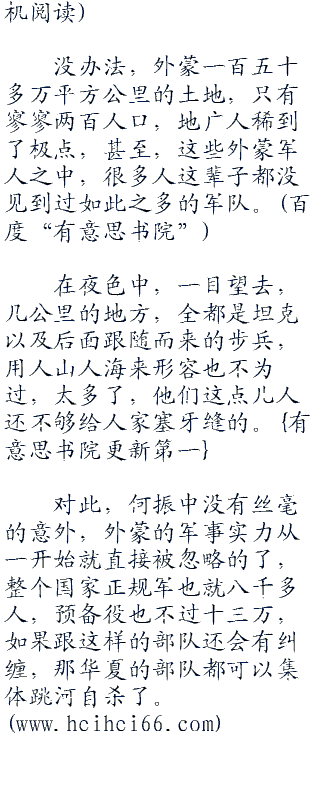 机阅读)
没办法，外蒙一百五十
多万平方公里的土地，只有
寥寥两百人口，地广人稀到
了极点，甚至，这些外蒙军
人之中，很多人这辈子都没
见到过如此之多的军队。(百
度“有意思书院”)
在夜色中，一目望去，
几公里的地方，全都是坦克
以及后面跟随而来的步兵，
用人山人海来形容也不为
过，太多了，他们这点儿人
还不够给人家塞牙缝的。{有
意思书院更新第一}
对此，何振中没有丝毫
的意外，外蒙的军事实力从
一开始就直接被忽略的了，
整个国家正规军也就八千多
人，预备役也不过十三万，
如果跟这样的部队还会有纠
缠，那华夏的部队都可以集
体跳河自杀了。
(www.hcihci66.com)